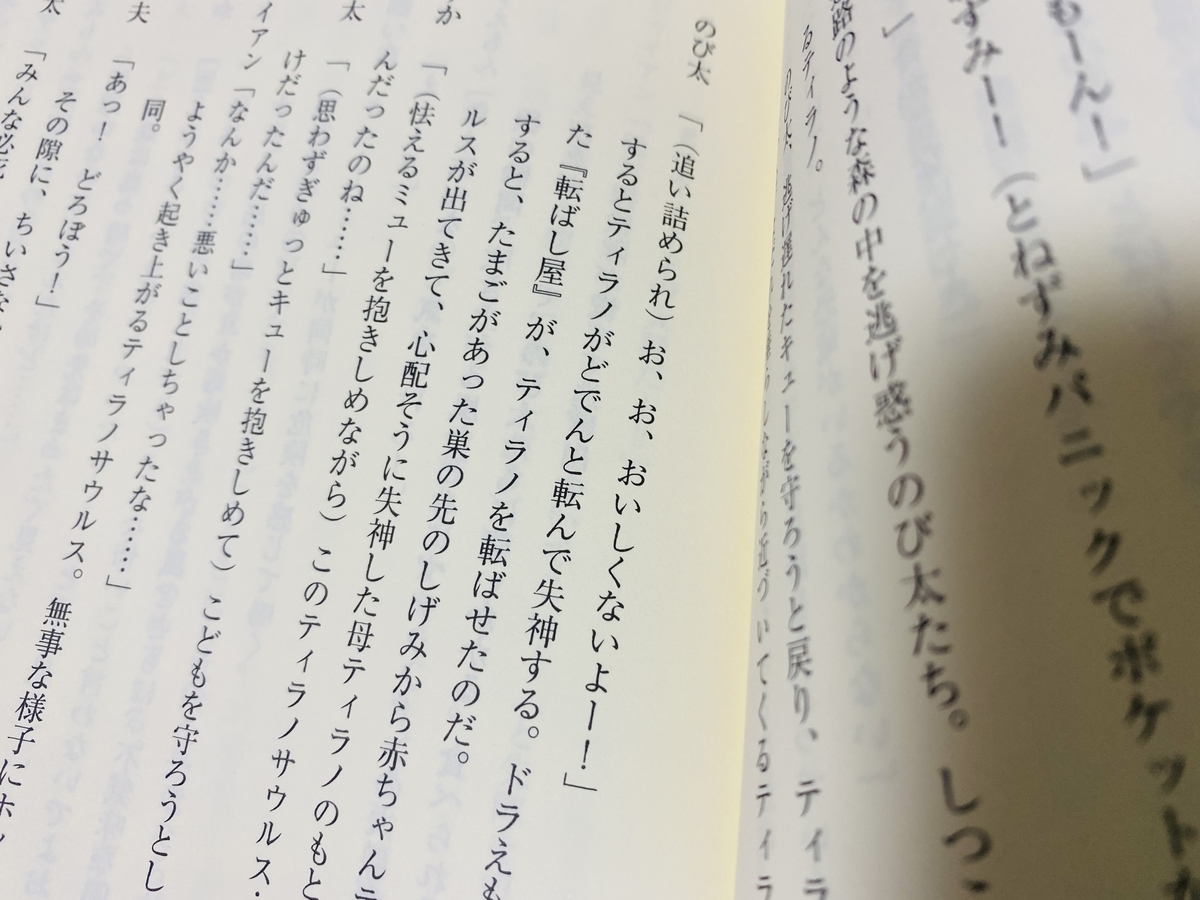 もーん！」
ずみー！（とねずみパニックでポケットを
」
路のような森の中を逃げ惑うのび太たち。しつこ
るティラノ。
のび太、逃げ遅れたキューを守ろうと戻り、ティラ
ながら近づいてくるティラ
のび太「（追い詰められ）お、お、おいしくないよー！」
するとティラノがどでんと転んで失神する。ドラえも
た『転ばし屋』が、ティラノを転ばせたのだ。
すると、たまごがあった巣の先のしげみから赤ちゃんテ
ルスが出てきて、心配そうに失神した母ティラノのもと
か「（怯えるミューを抱きしめながら）このティラノサウルス・
んだったのね……」
太「（思わずぎゅっとキューを抱きしめて）こどもを守ろうとし
けだったんだ……」
イアン「なんか……悪いことしちゃったな……」
ようやく起き上がるティラノサウルス。無事な様子にホッ
同。
夫「あっ！　どろぼう！」
その隙に、ちいさな
太「みんな必死